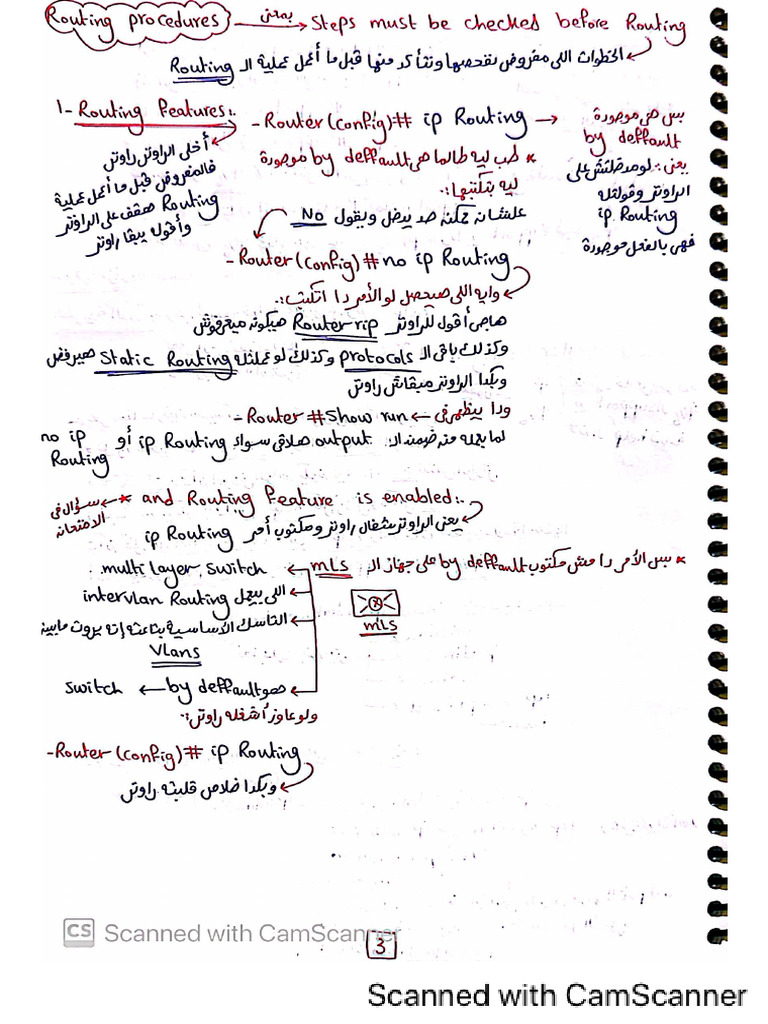 Routing procedures بمعنى → Steps must be checked before Routing
الخطوات اللى مفروض نفحصها ونتأكد منها قبل ما أعمل عملية الـ Routing
1- Routing Features:.
أخلى الراوتر راوتر
فالمفروض قبل ما أعمل عملية
Routing هقف على الراوتر
وأقوله يبقا راوتر
- Router(config)# ip Routing →
بس هى موجودة
by deffault
يعنى:. لو مدخلتش على
الراوتر وقولتله
ip Routing
فهى بالفعل موجودة
* طب ليه طالما هى by deffault موجودة
ليه بتكتبها:.
علشان ممكن حد يدخل ويقول No
- Router(config)# no ip Routing
وايه اللى هيحصل لو الأمر دا اتكتب:.
هاجى أقول للراوتر Router rip هيكون ميعرفوش
وكذلك باقى الـ protocols وكذلك لو عملتله Static Routing هيرفض
وبكدا الراوتر مبقاش راوتر
ودا بيظهر فى ← Router#Show run -
لما بعمله من ضمن الـ output هلاقى سواء ip Routing أو no ip
Routing
* and Routing Feature is enabled:.
← سؤال فى
الامتحان
يعنى الراوتر شغال راوتر ومكتوب أمر ip Routing
* بس الأمر دا مش مكتوب by deffault على جهاز الـ MLS
multi layer switch
اللى بيعمل intervlan Routing
MLS
التاسك الأساسية بتاعته إنه يروت مابين
Vlans
هو by deffault ← switch
ولو عاوز أشغله راوتر:.
-Router(config)# ip Routing
وبكدا خلاص قلبته راوتر
CS Scanned with CamScanner
3
Scanned with CamScanner